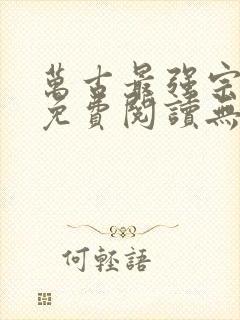 萬古最强宗
免費閱讀無
何輕語